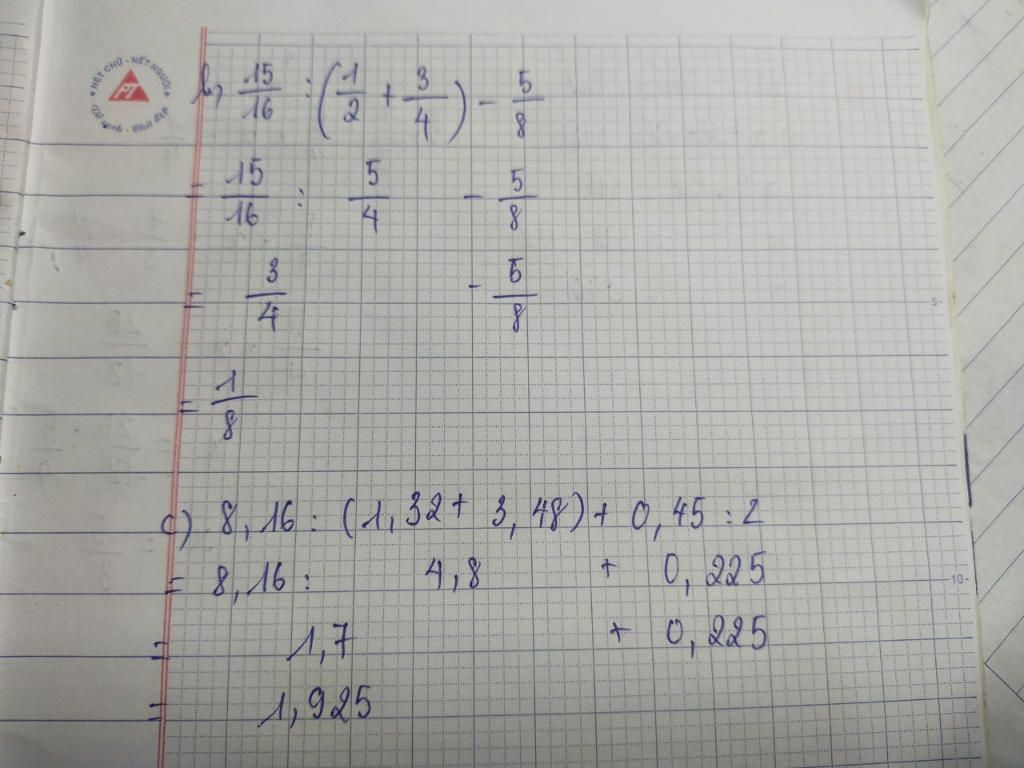 NÉT CHỮ - NẾT NGƯỜI
PT
b, 15/16 : (1/2 + 3/4) - 5/8
= 15/16 : 5/4 - 5/8
= 3/4 - 5/8
5-
= 1/8
c) 8,16 : (1,32 + 3,48) + 0,45 : 2
= 8,16 : 4,8 + 0,225
10-
= 1,7 + 0,225
= 1,925